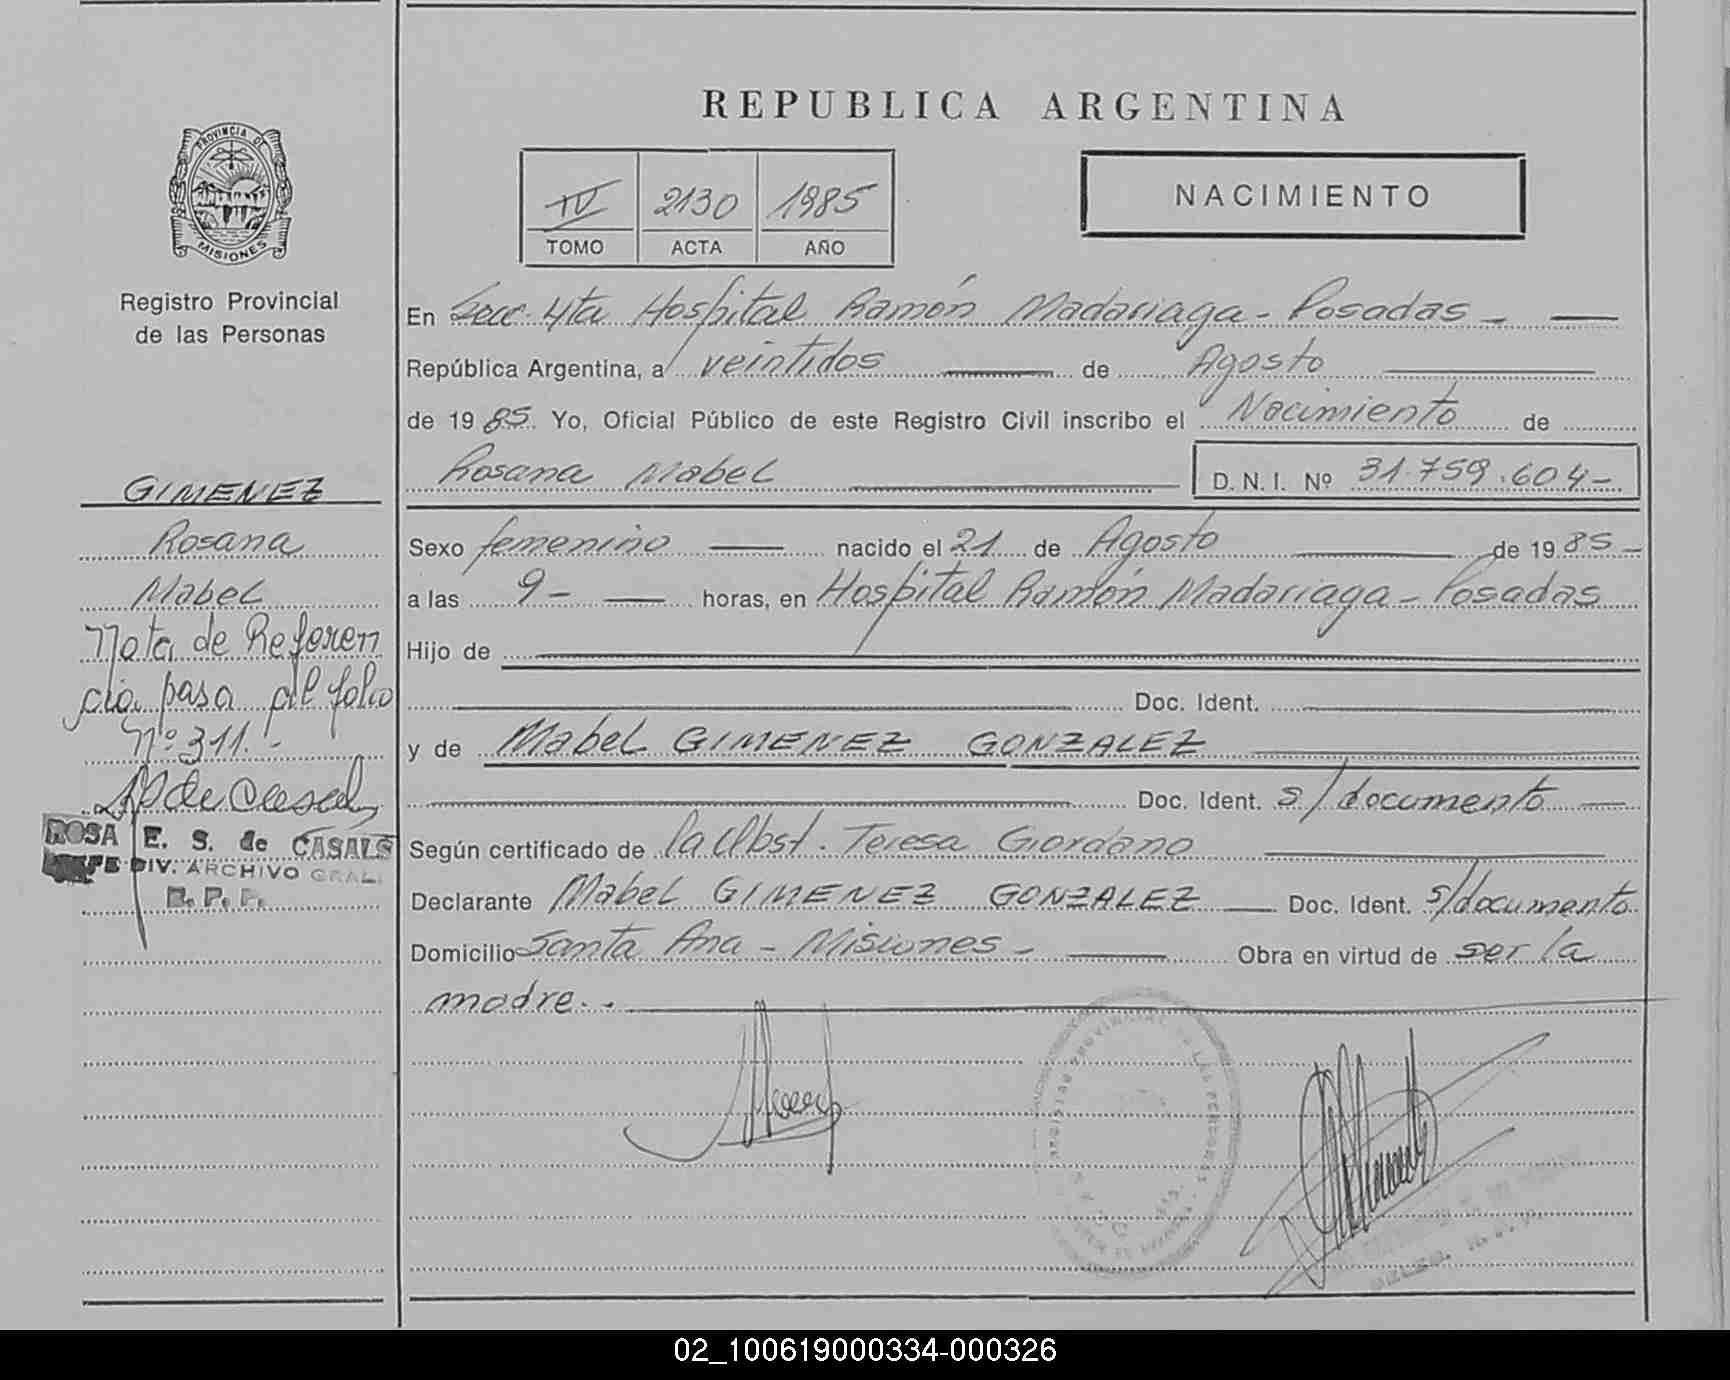 REPUBLICA ARGENTINA
PROVINCIA DE
MISIONES
Registro Provincial
de las Personas
IV 2130 1985
TOMO ACTA AÑO
NACIMIENTO
En Secc. 4ta Hospital Ramón Madariaga - Posadas -
República Argentina, a veintidos de Agosto
de 1985. Yo, Oficial Público de este Registro Civil inscribo el Nacimiento de
Rosana Mabel D. N. I. Nº 31.759.604-
Sexo femenino nacido el 21 de Agosto de 1985-
a las 9- horas, en Hospital Ramón Madariaga - Posadas
Hijo de
Doc. Ident.
y de Mabel GIMENEZ GONZALEZ
Doc. Ident. s/documento
Según certificado de la Obst. Teresa Giordano
Declarante Mabel GIMENEZ GONZALEZ Doc. Ident. s/documento
Domicilio Santa Ana - Misiones - Obra en virtud de ser la
madre..
GIMENEZ
Rosana
Mabel
Nota de Referen
cia pasa al folio
Nº 311.-
ROSA E. S. de CASALS
JEFE DIV. ARCHIVO GRAL.
R. P. P.
02_100619000334-000326